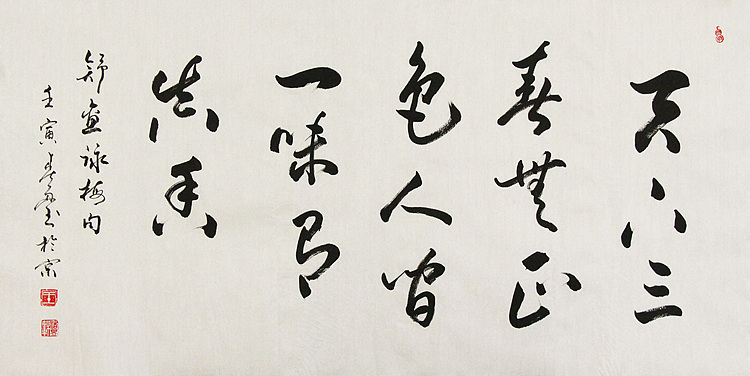 天下三
春無正
色人間
一味有
真香
舒亶詠梅句
壬寅春書於京